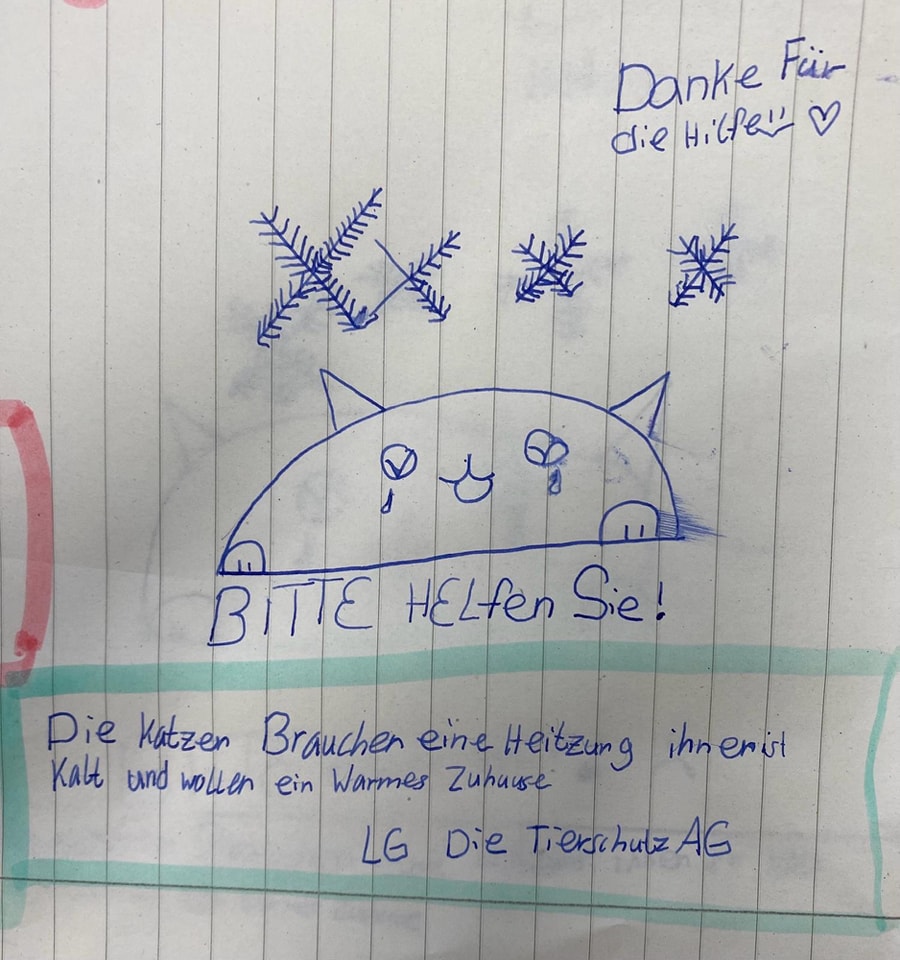 Danke Für
die Hilfe ♡
BITTE HELfen Sie!
Die Katzen Brauchen eine Heitzung ihnen ist
Kalt und wollen ein Warmes Zuhause
LG Die Tierschutz AG